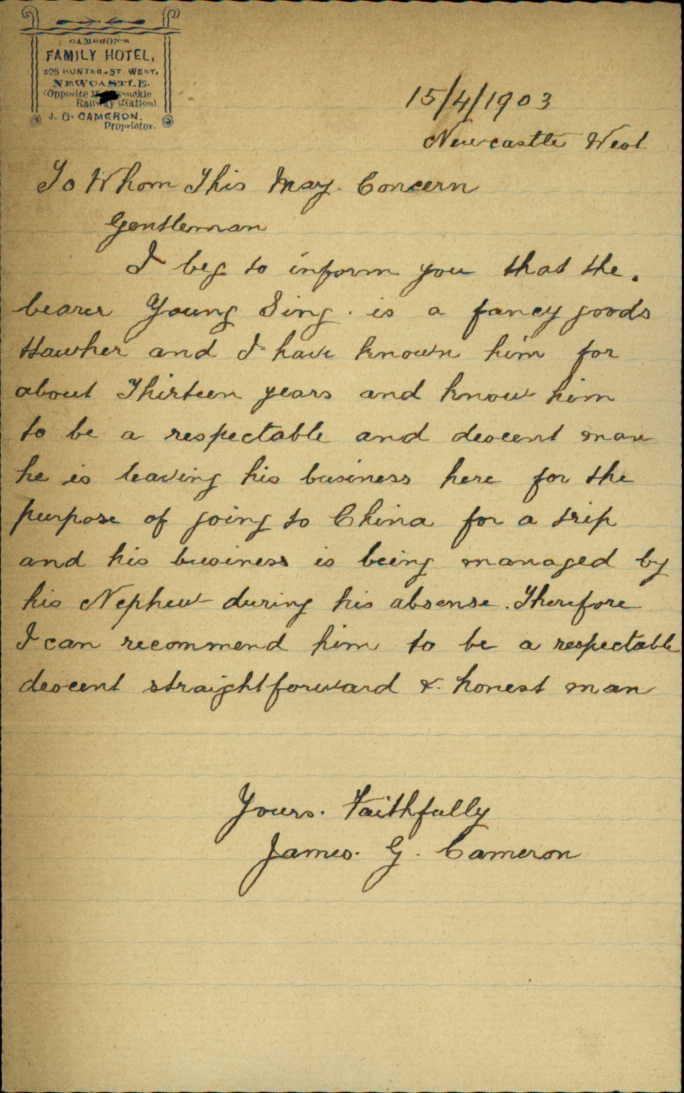 CAMERON'S
FAMILY HOTEL,
HUNTER-ST WEST,
NEWCASTLE.
(Opposite
Railway Station)
J. G. CAMERON,
Proprietor.
15/4/1903
Newcastle West
To Whom This May Concern
Gentleman
I beg to inform you that the.
bearer Young Sing. is a fancy goods
Hawker and I have known him for
about Thirteen years and know him
to be a respectable and descent man
he is leaving his business here for the
purpose of going to China for a trip
and his business is being managed by
his Nephew during his absense. Therefore
I can recommend him to be a respectable
descent straightforward & honest man
Yours. Faithfully
James. G. Cameron